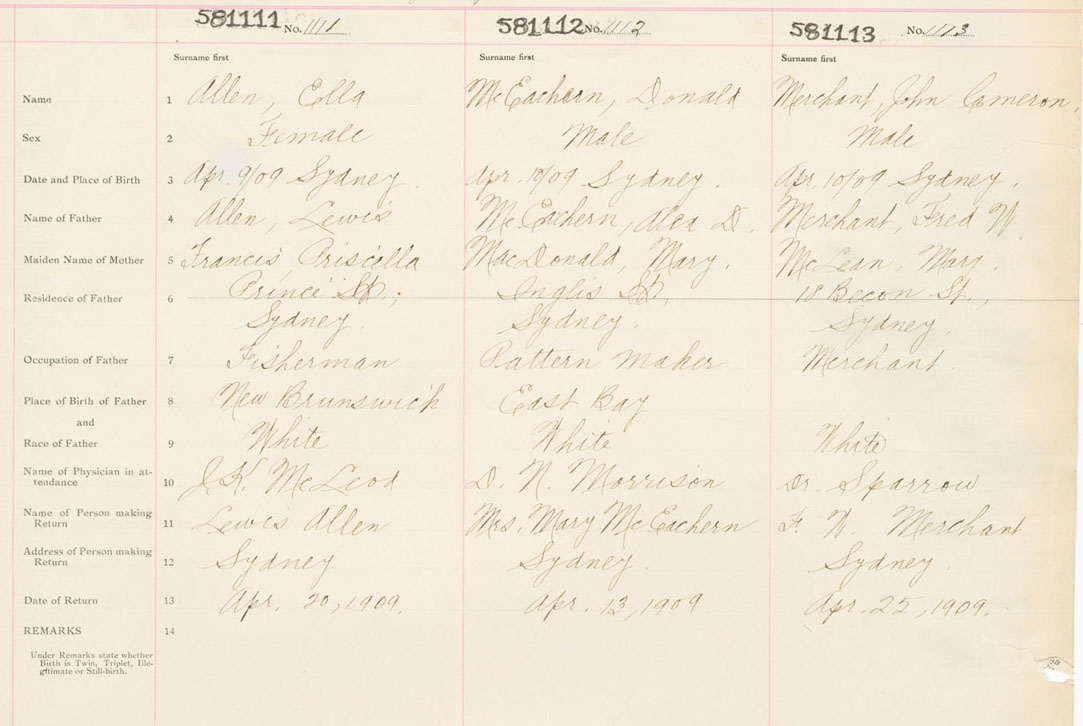 581111 No. 1111 581112 No. 1112 581113 No. 1113
Surname first Surname first Surname first
Name 1 Allen, Ella McEachern, Donald Merchant, John Cameron,
Sex 2 Female Male Male
Date and Place of Birth 3 Apr. 9/09 Sydney. Apr. 10/09 Sydney. Apr. 10/09 Sydney.
Name of Father 4 Allen, Lewis McEachern, Alex D. Merchant, Fred W.
Maiden Name of Mother 5 Francis, Priscilla MacDonald, Mary. McLean, Mary.
Residence of Father 6 Prince St., Inglis St., 18 Becon St.,
Sydney. Sydney. Sydney.
Occupation of Father 7 Fisherman Pattern maker Merchant.
Place of Birth of Father 8 New Brunswick East Bay
and
Race of Father 9 White White White
Name of Physician in at-
tendance 10 J. K. McLeod D. N. Morrison Dr. Sparrow
Name of Person making
Return 11 Lewis Allen Mrs. Mary McEachern F. W. Merchant
Address of Person making
Return 12 Sydney Sydney. Sydney.
Date of Return 13 Apr. 20, 1909. Apr. 13, 1909 Apr. 25, 1909.
REMARKS 14
Under Remarks state whether
Birth is Twin, Triplet, Ille-
gitimate or Still-birth.